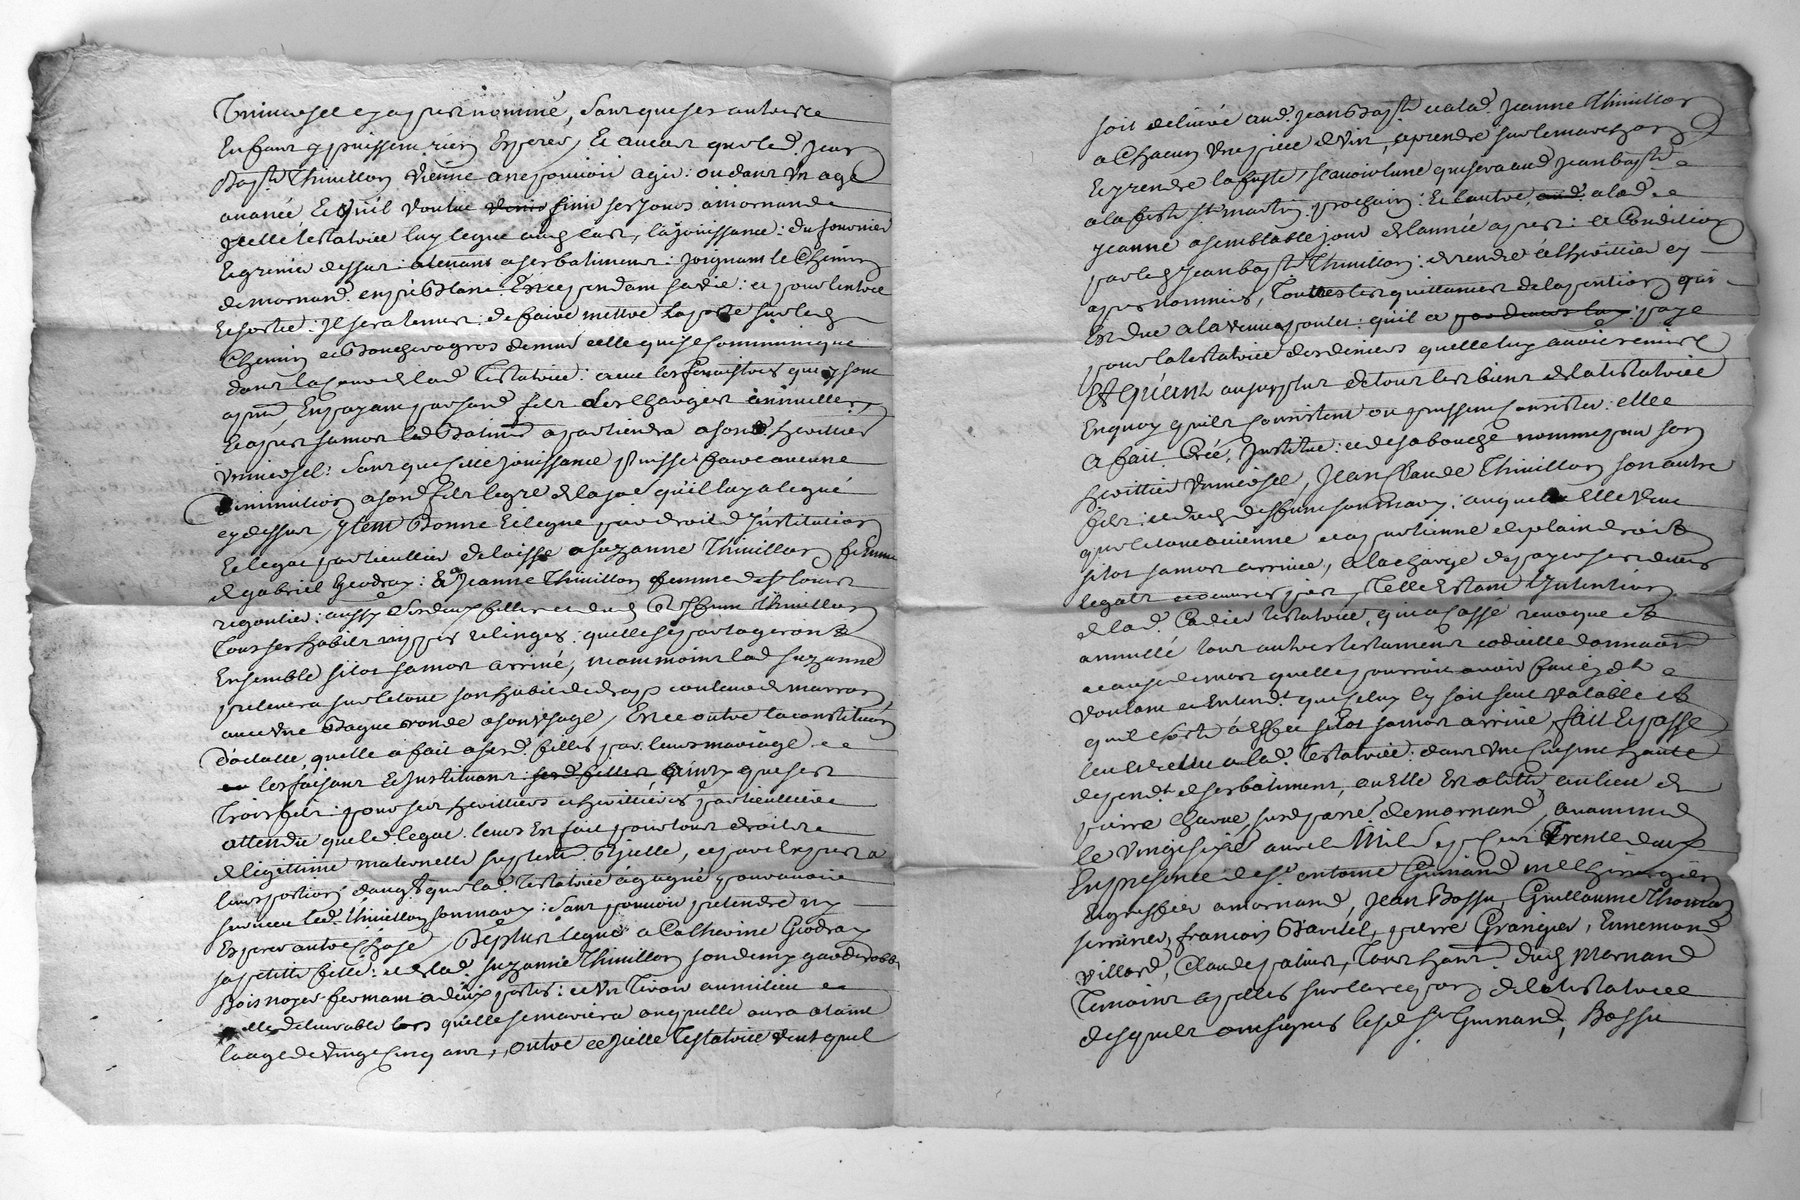 universel cy apres nommé, sans que ses autres
Enfans y puissent rien Esperer, Et au cas que led. Jean
Bapte. Thivillon vienne a ne pouvoir agir: ou dans un age
avancé Et qu'il voulut venir finir ses jours a mornand
Jcelle testatrice luy legue aud cas, la jouissance: du fournier
Et grenier dessus: attenant a ses batiments: joignant le Chemin
de mornand Et ce pendant sa vie: et pour lentrée
Et sortie: Jl sera tenus: de faire mettre la porte sur led
Chemin et Boucher a gros de mur celle qui se communique
dans la cour de lad Testatrice: avec les fenaistres qui y sont
En payant par sond. fils les Charges annuelles,
Et apres sa mort led Batiment apartiendra a sond hérittier
universel: sans que cette jouissance puisse faire aucune
diminution a sond fils legre de la qu'il luy a legué
cy dessus, Jtem Donne Et legue par droit d'Jnstitution
Et legat particullier delaisse a suzanne Thivillon femme
de gabriel Giodray: Et a Jeanne Thivillon femme de st louis
rigottier: aussy Ses deux filles et dud deffunt Thivillon
Tous ses habits nippes et linges: quelles partageront
Ensemble sitot sa mort arrivé, neanmoins lad Suzanne
prelevera sur le tout son habit de drap couleur de marron
avec une Bague ronde a son usage, Et ce outre la constitution
dotalle, quelle a fait a ses d. filles par leurs mariage
les faisant Et Jnstituant: ses d filles ainsy que ses
Trois fils: pour ses hérittiers et hérittières particullière
attendu que led. legat. leurs Est fait pour tous droits
de légittime maternelle suplement d'jcelle, et pareil
leurs portions d'aug.t que lad. Testatrice a gagné pour avoir
survécu led. Thivillon son mary: sans pouvoir pretendre ny
Esperer autre chose, De plus legue a Catherine Giodray
sa petitte fille: et de lad. Suzanne Thivillon son demy garderobbe
Bois noyer fermant a deux portes: et un Tiroir au milieu
delivrable lors qu'elle se mariera ou quelle aura ataint
laage de vingt cinq ans, outre ce jcelle Testatrice veut quil
soit delivré aud. Jean Bapte. et a lad. Jeanne Thivillon
a Chacun une piece de vin, a prendre sur le marchand
Et prendre la futte, scavoir lune qui sera aud jean bapte
a la feste St martin prochain: Et lautre, aud a lad
jeanne a semblable jour de lannée apres: a Condition
par led Jean bapte Thivillon: de rendre a lhérittier cy
apres nommés, Touttes les quittances de la pention qui
Est due a la veuve poulet: qu'il a payé
pour la testatrice des deniers quelle luy avoit remis
Et quant au surplus de tous les biens de la testatrice
En quoy quils consistent ou puissent consister: elle
a fait Créé, Jnstitué: et de sa bouche nommé pour son
hérittier universel, Jean Claude Thivillon son autre
fils: et dud deffunt son mary: auquel Elle veut
que le tout avienne et apartienne de plain droit
sitot sa mort arrivée, a la charge de payer ses dettes
legats et œuvres pies, Telle Estant l'Jntention
de lad. Cadier testatrice, qui a cassé revoqué et
annullé tous autres testament codicille donnaon
a cause de mort quelle pourroit avoir faits devt
voulant et Entendt que celuy cy soit seul valable et
quil sorte a Effet sitot sa mort arrivé, fait Et passé
leu et relu a lad. Testatrice: dans une cuisine haute
depend.t de ses batiment, ou Elle Est alitté au lieu de
pierre Chavue, susd. parr. de mornand, avant midi
le vingt sixie avril Mil sept cent trente deux
En presence de sr antoine Guinand me Chirurgien
Et greffier a mornand, Jean Bossu, Guillaume Thomas
serrurier, francois Davitel, pierre Granger, Ennemond
Villard, Claude patin, Tous habit. dud Mornand
Temoins apelles sur la requon de la testatrice
desquels ont signés lesd sr Guinand, Bossu